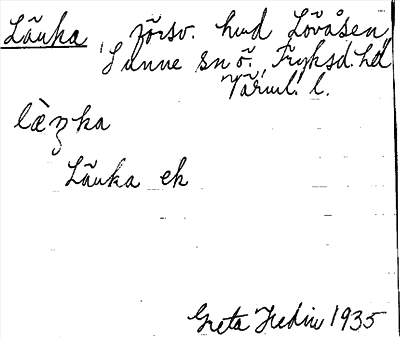 Länka, försv. hmd Lövåsen,
Sunne sn ö., Fryksd. hd
Värml. l.
lὰŋka
Länka ek
Greta Hedin 1935